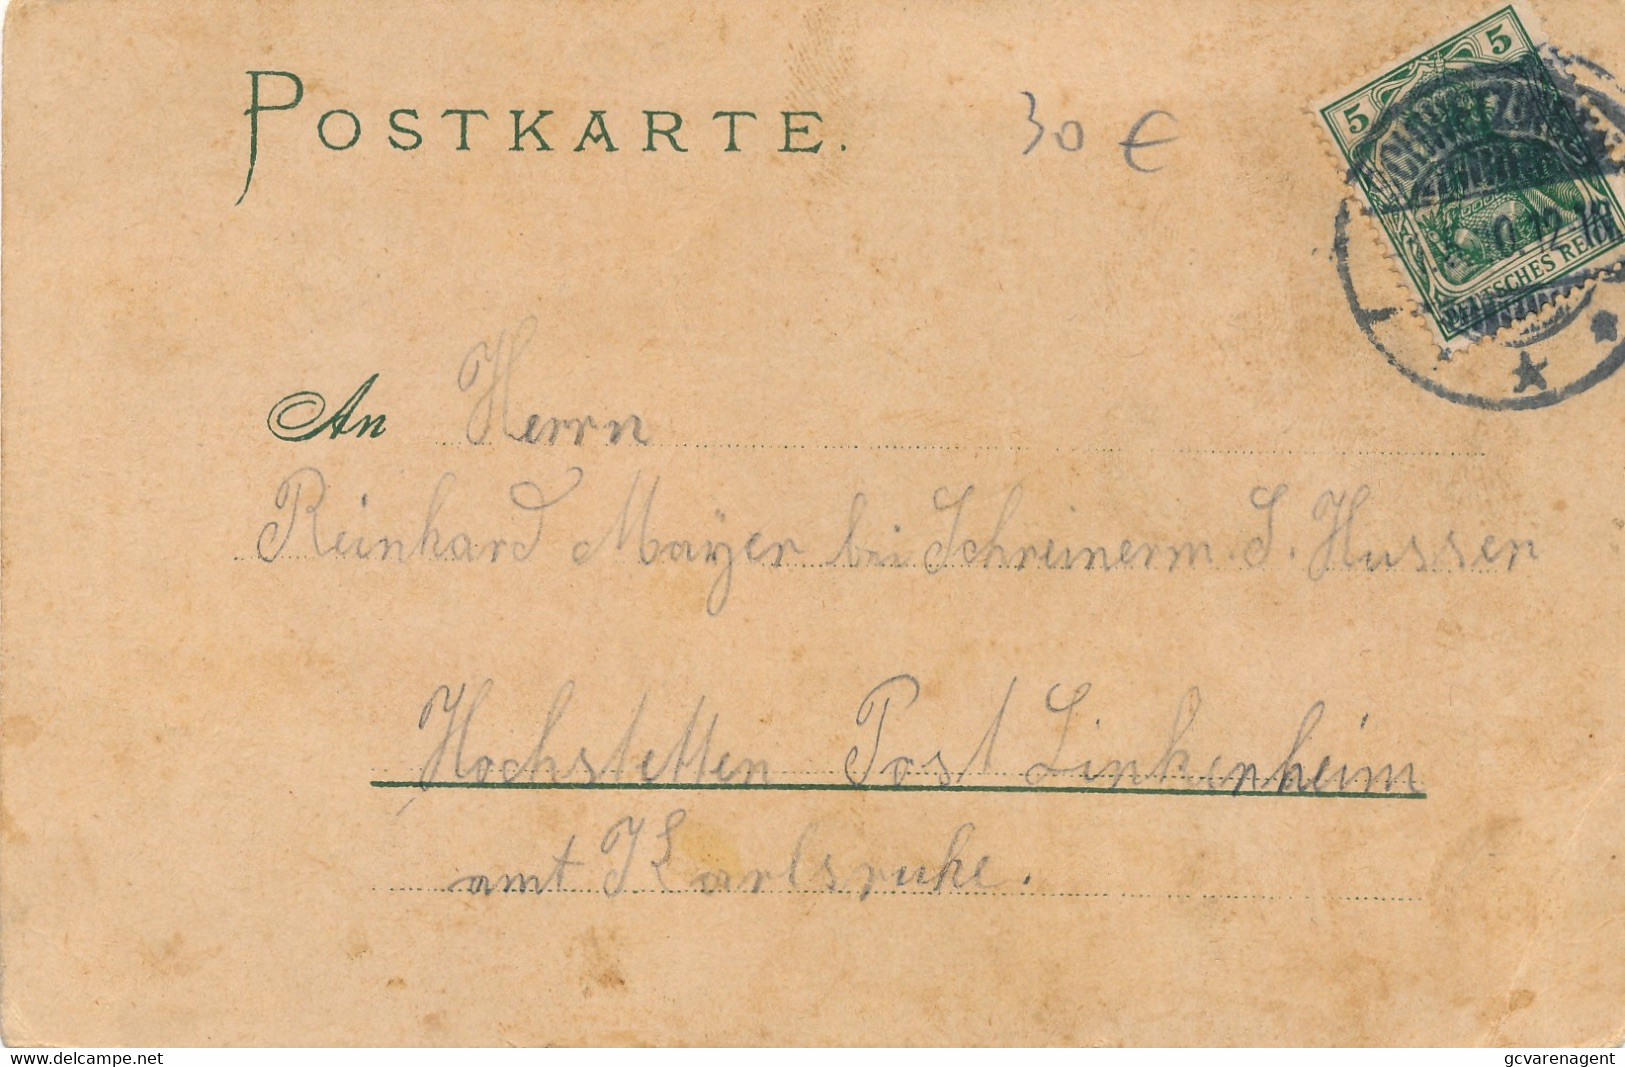 POSTKARTE.
30 €
5 5
DEUTSCHES REICH
An Herrn
Reinhard Mayer bei Schreinerm. S. Hussen
Hochstetten Post Linkenheim
amt Karlsruhe.
www.delcampe.net
gcvarenagent